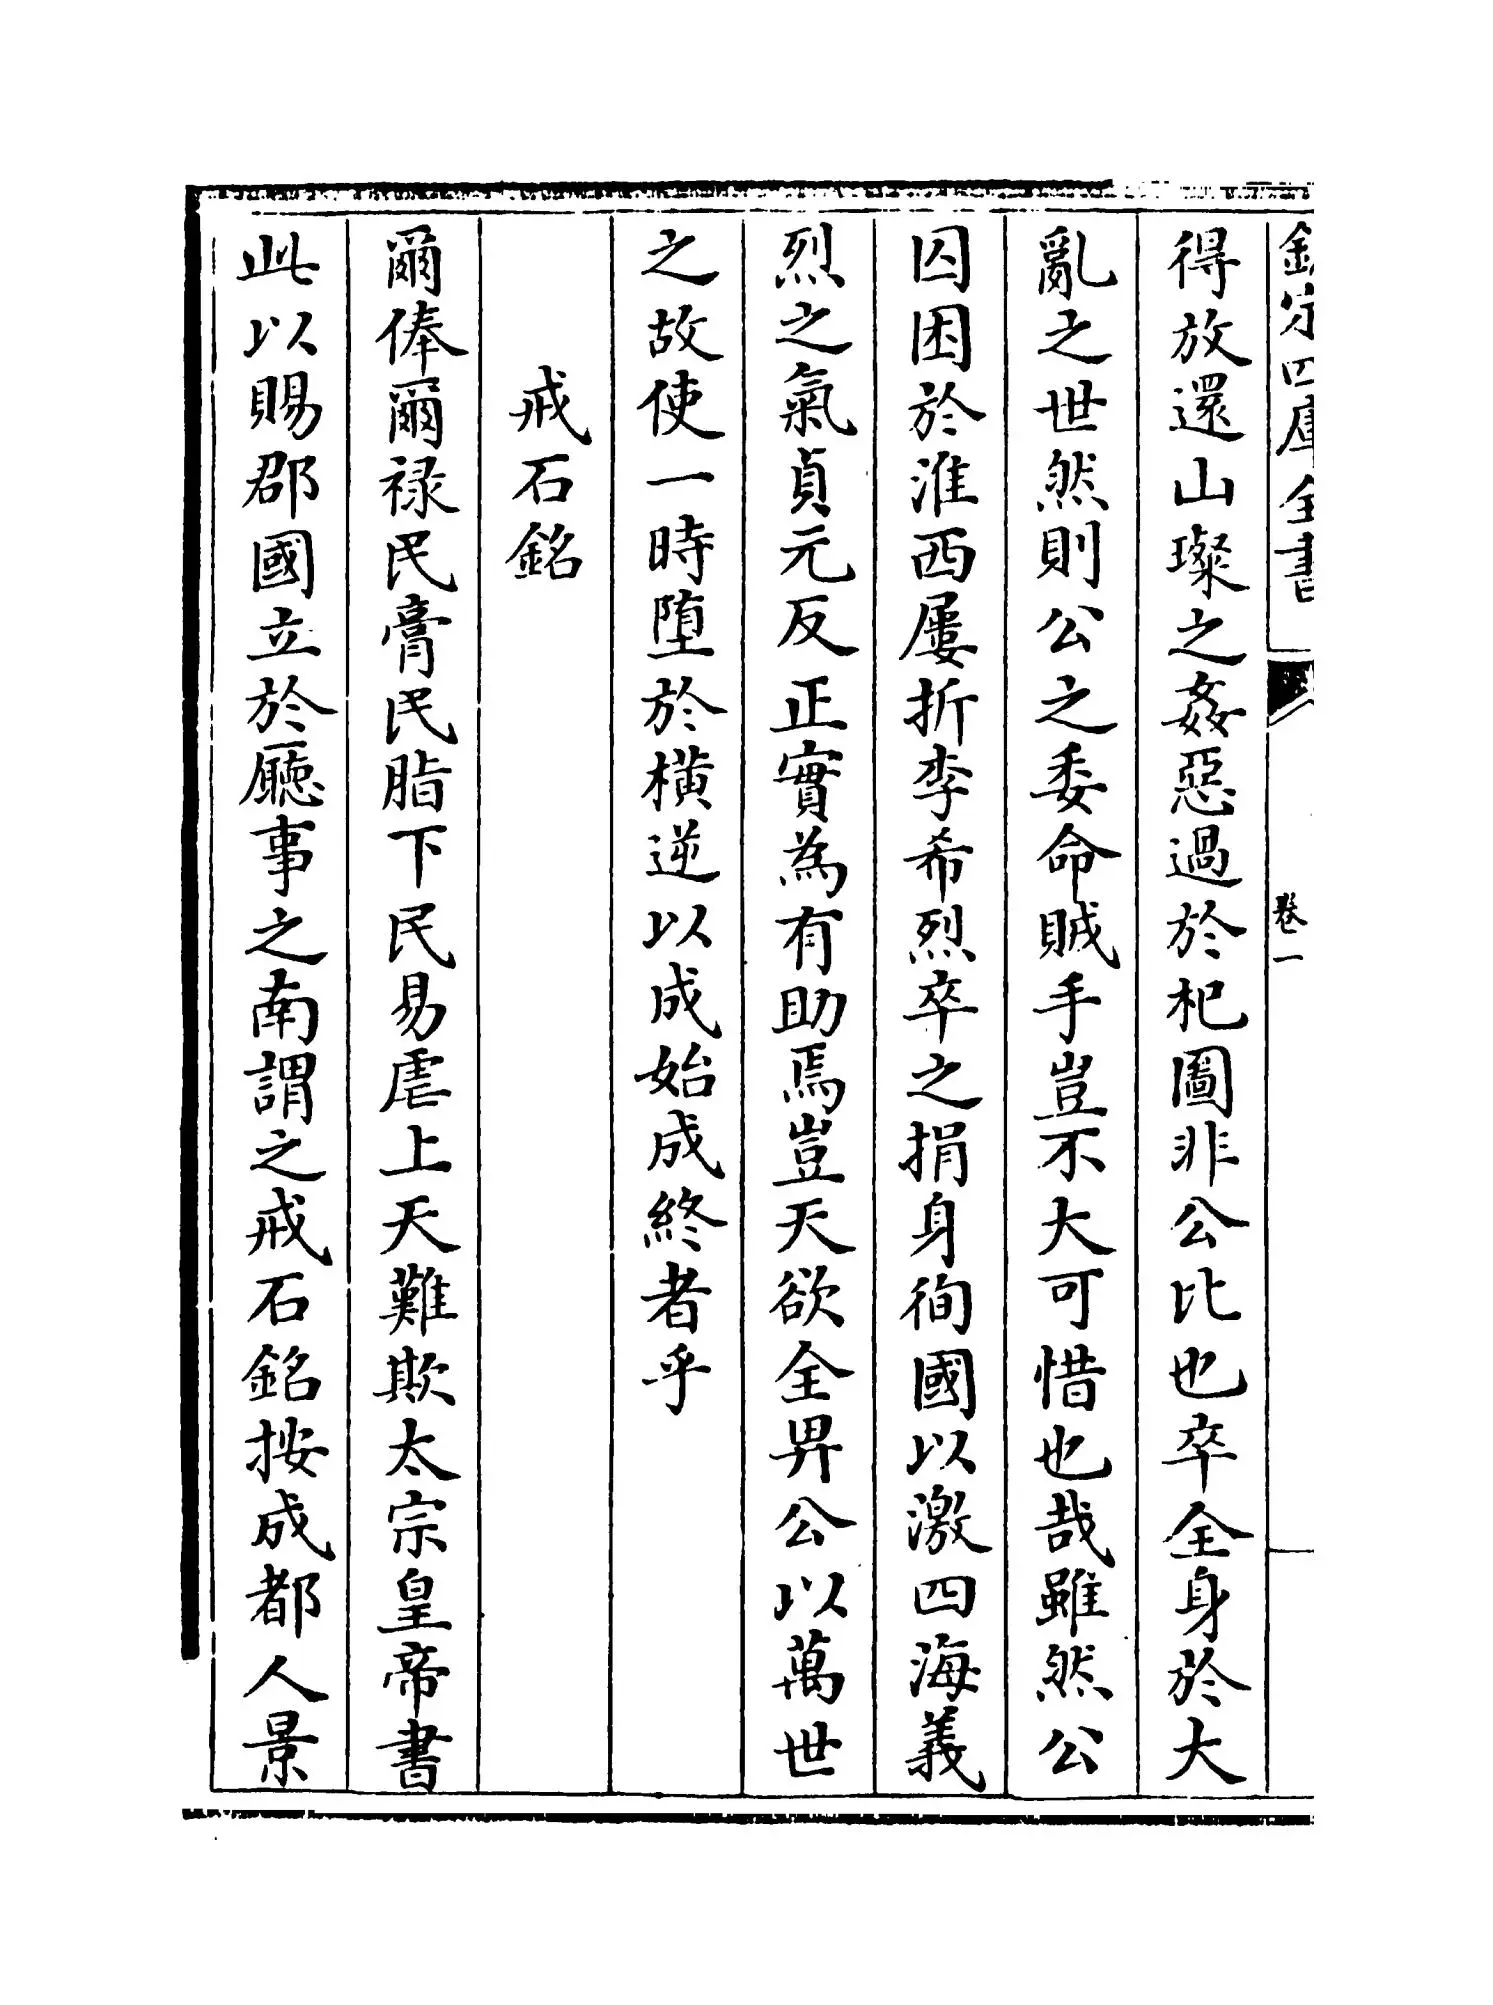 欽定四庫全書
卷一
得放還山璨之姦惡過於杞圖非公比也卒全身於大
亂之世然則公之委命賊手豈不大可惜也哉雖然公
囚困於淮西屢折李希烈卒之捐身徇國以激四海義
烈之氣貞元反正實為有助焉豈天欲全畀公以萬世
之故使一時堕於橫逆以成始成終者乎
戒石銘
爾俸爾禄民膏民脂下民易虐上天難欺太宗皇帝書
此以賜郡國立於廳事之南謂之戒石銘按成都人景